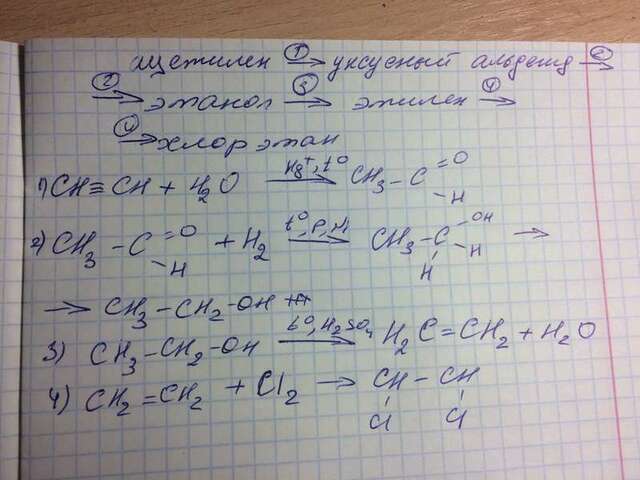 ацетилен ①→ уксусный альдегид ②→
②→ этанол ③→ этилен ④→
④→ хлорэтан
1) CH≡CH + H₂O Hg⁺, t° → CH₃–C=O –H
2) CH₃–C=O –H + H₂ t°, P, Ni → CH₃–C–OH –H H →
→ CH₃–CH₂–OH
3) CH₃–CH₂–OH t°, H₂SO₄ → H₂C=CH₂ + H₂O
4) CH₂=CH₂ + Cl₂ → CH–CH
Cl Cl